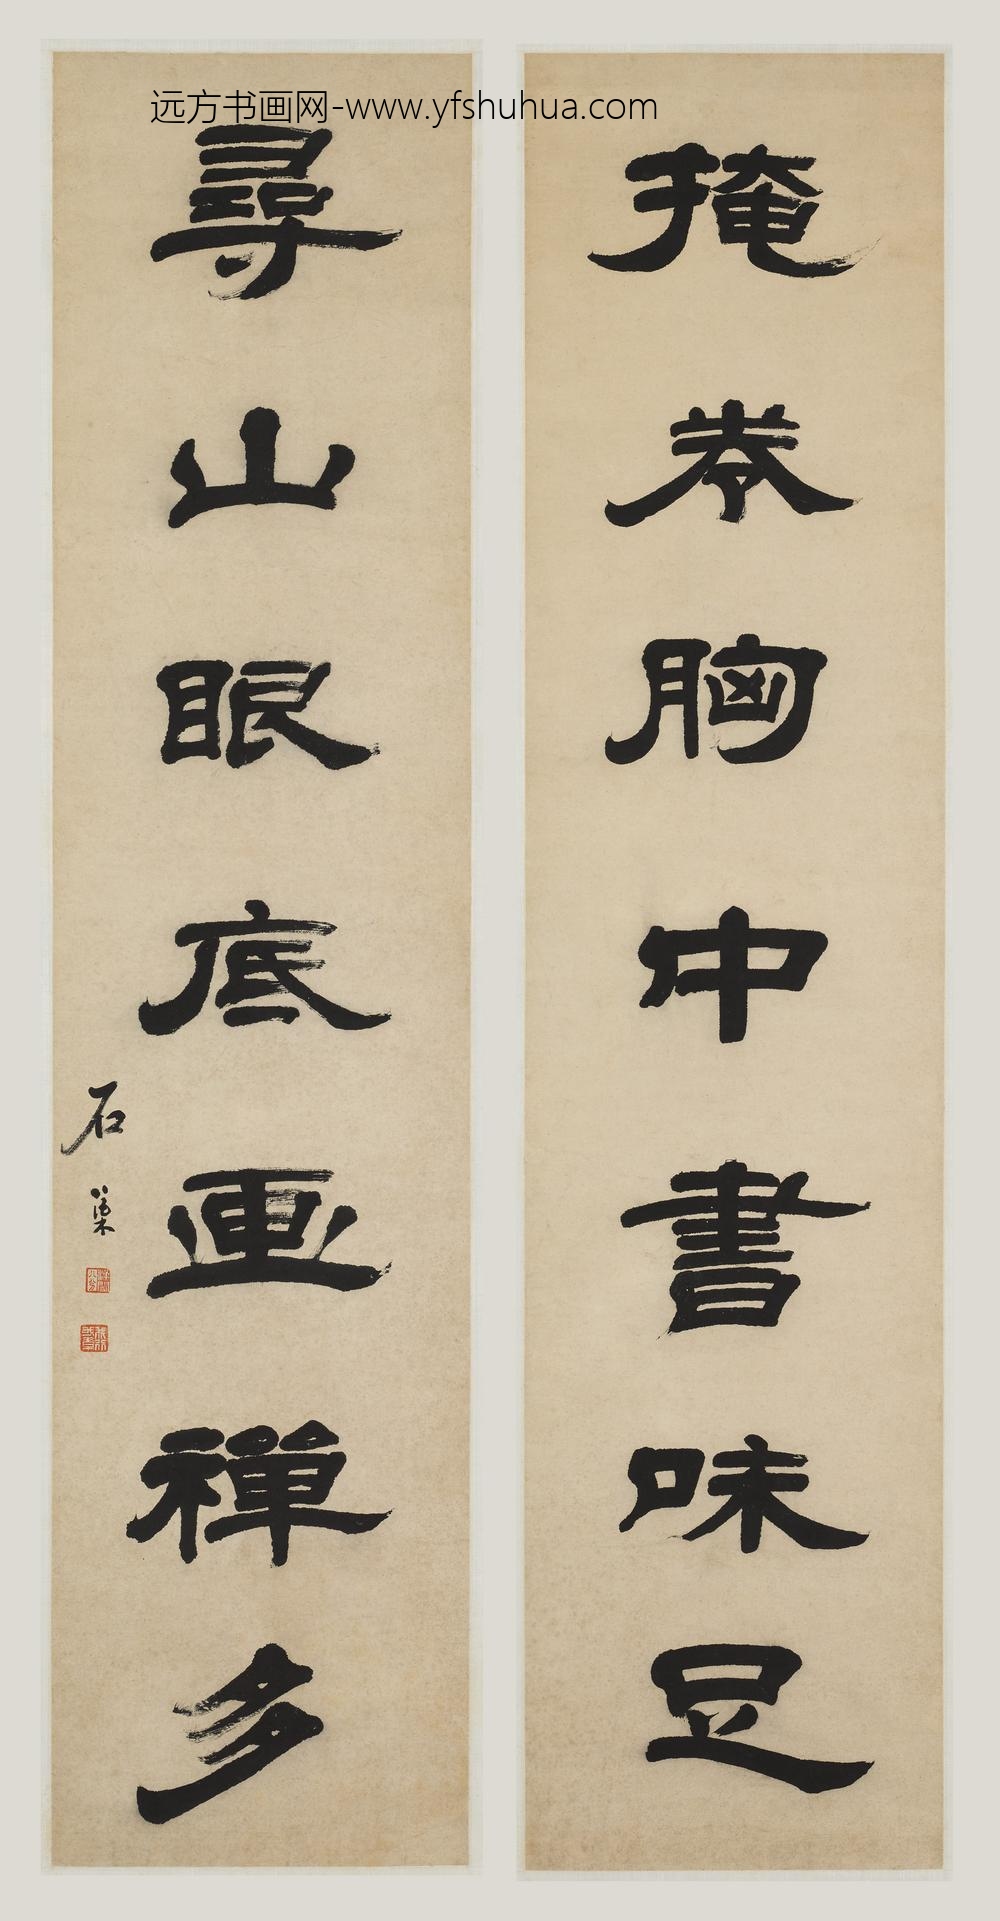 远方书画网-www.yfshuhua.com
掩卷胸中書味足
尋山眼底画禪多
石渠